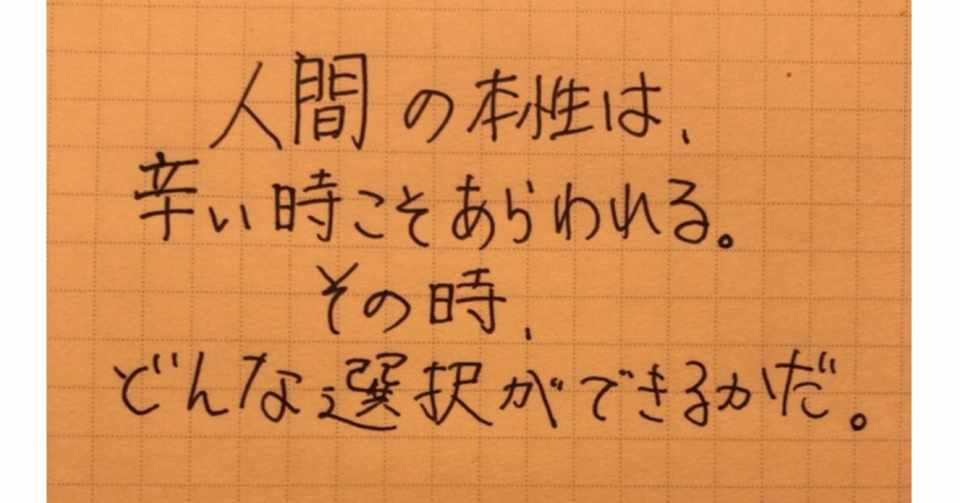 人間の本性は、
辛い時こそあらわれる。
その時、
どんな選択ができるかだ。